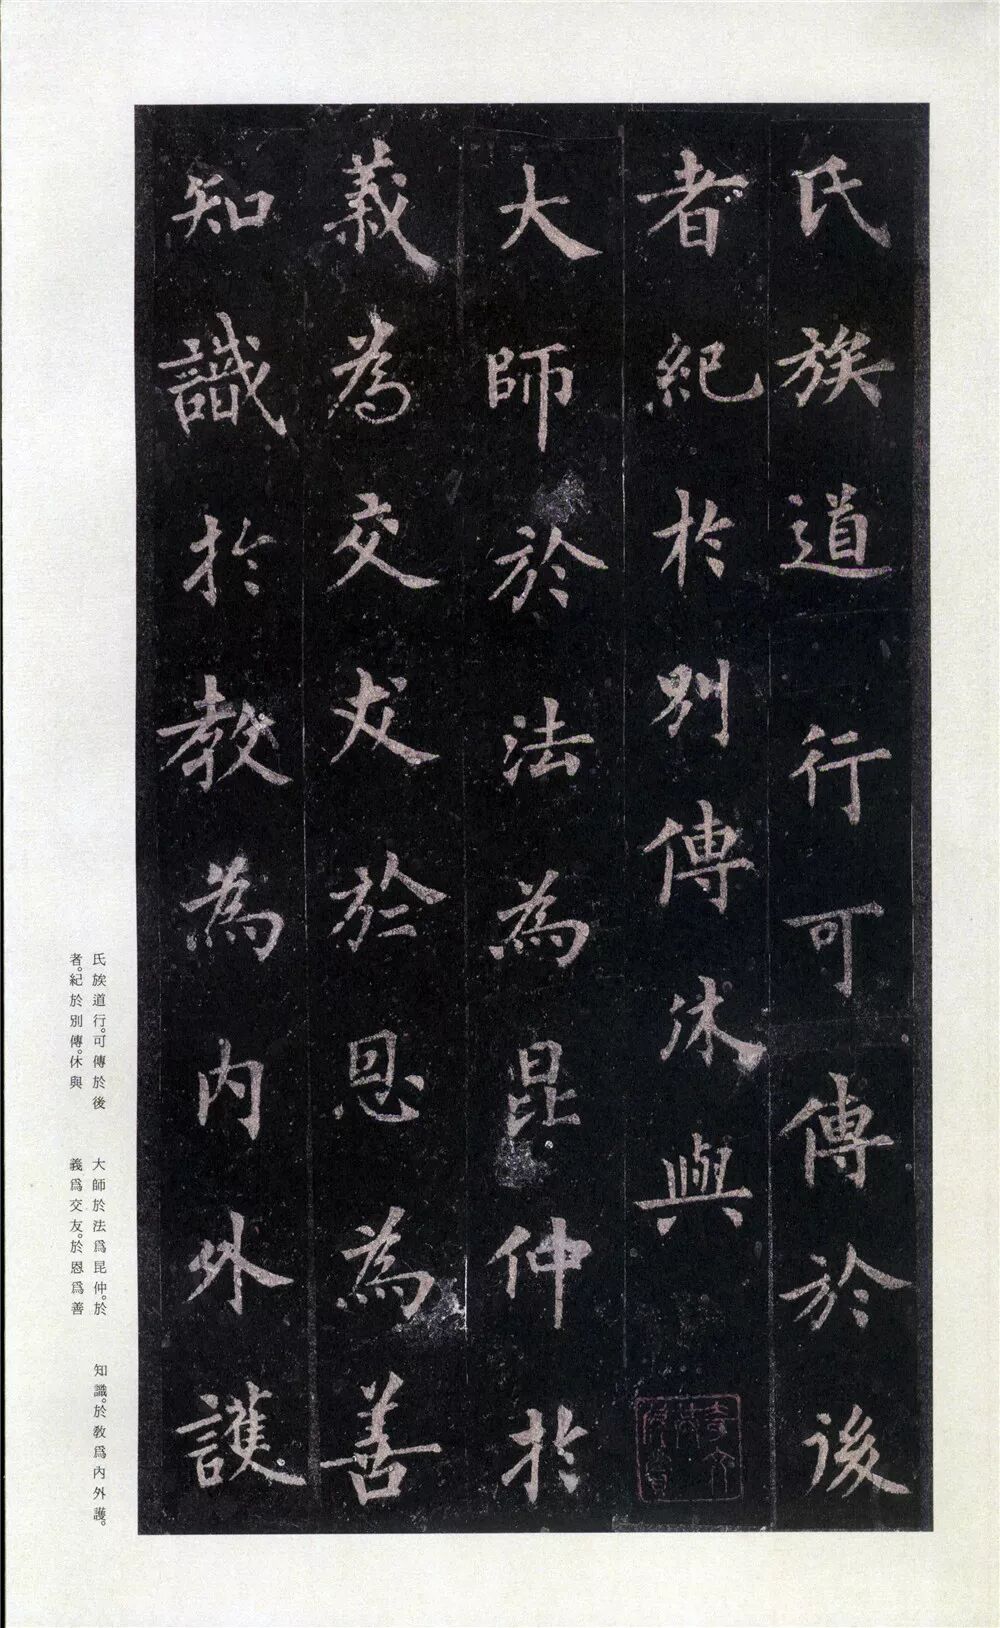 氏族道行可傳於後
者紀於別傳休與
大師於法為昆仲於
義為交友於恩為善
知識於教為內外護
氏族道行。可傳於後
者。紀於別傳。休與
大師於法爲昆仲。於
義爲交友。於恩爲善
知識。於教爲內外護。